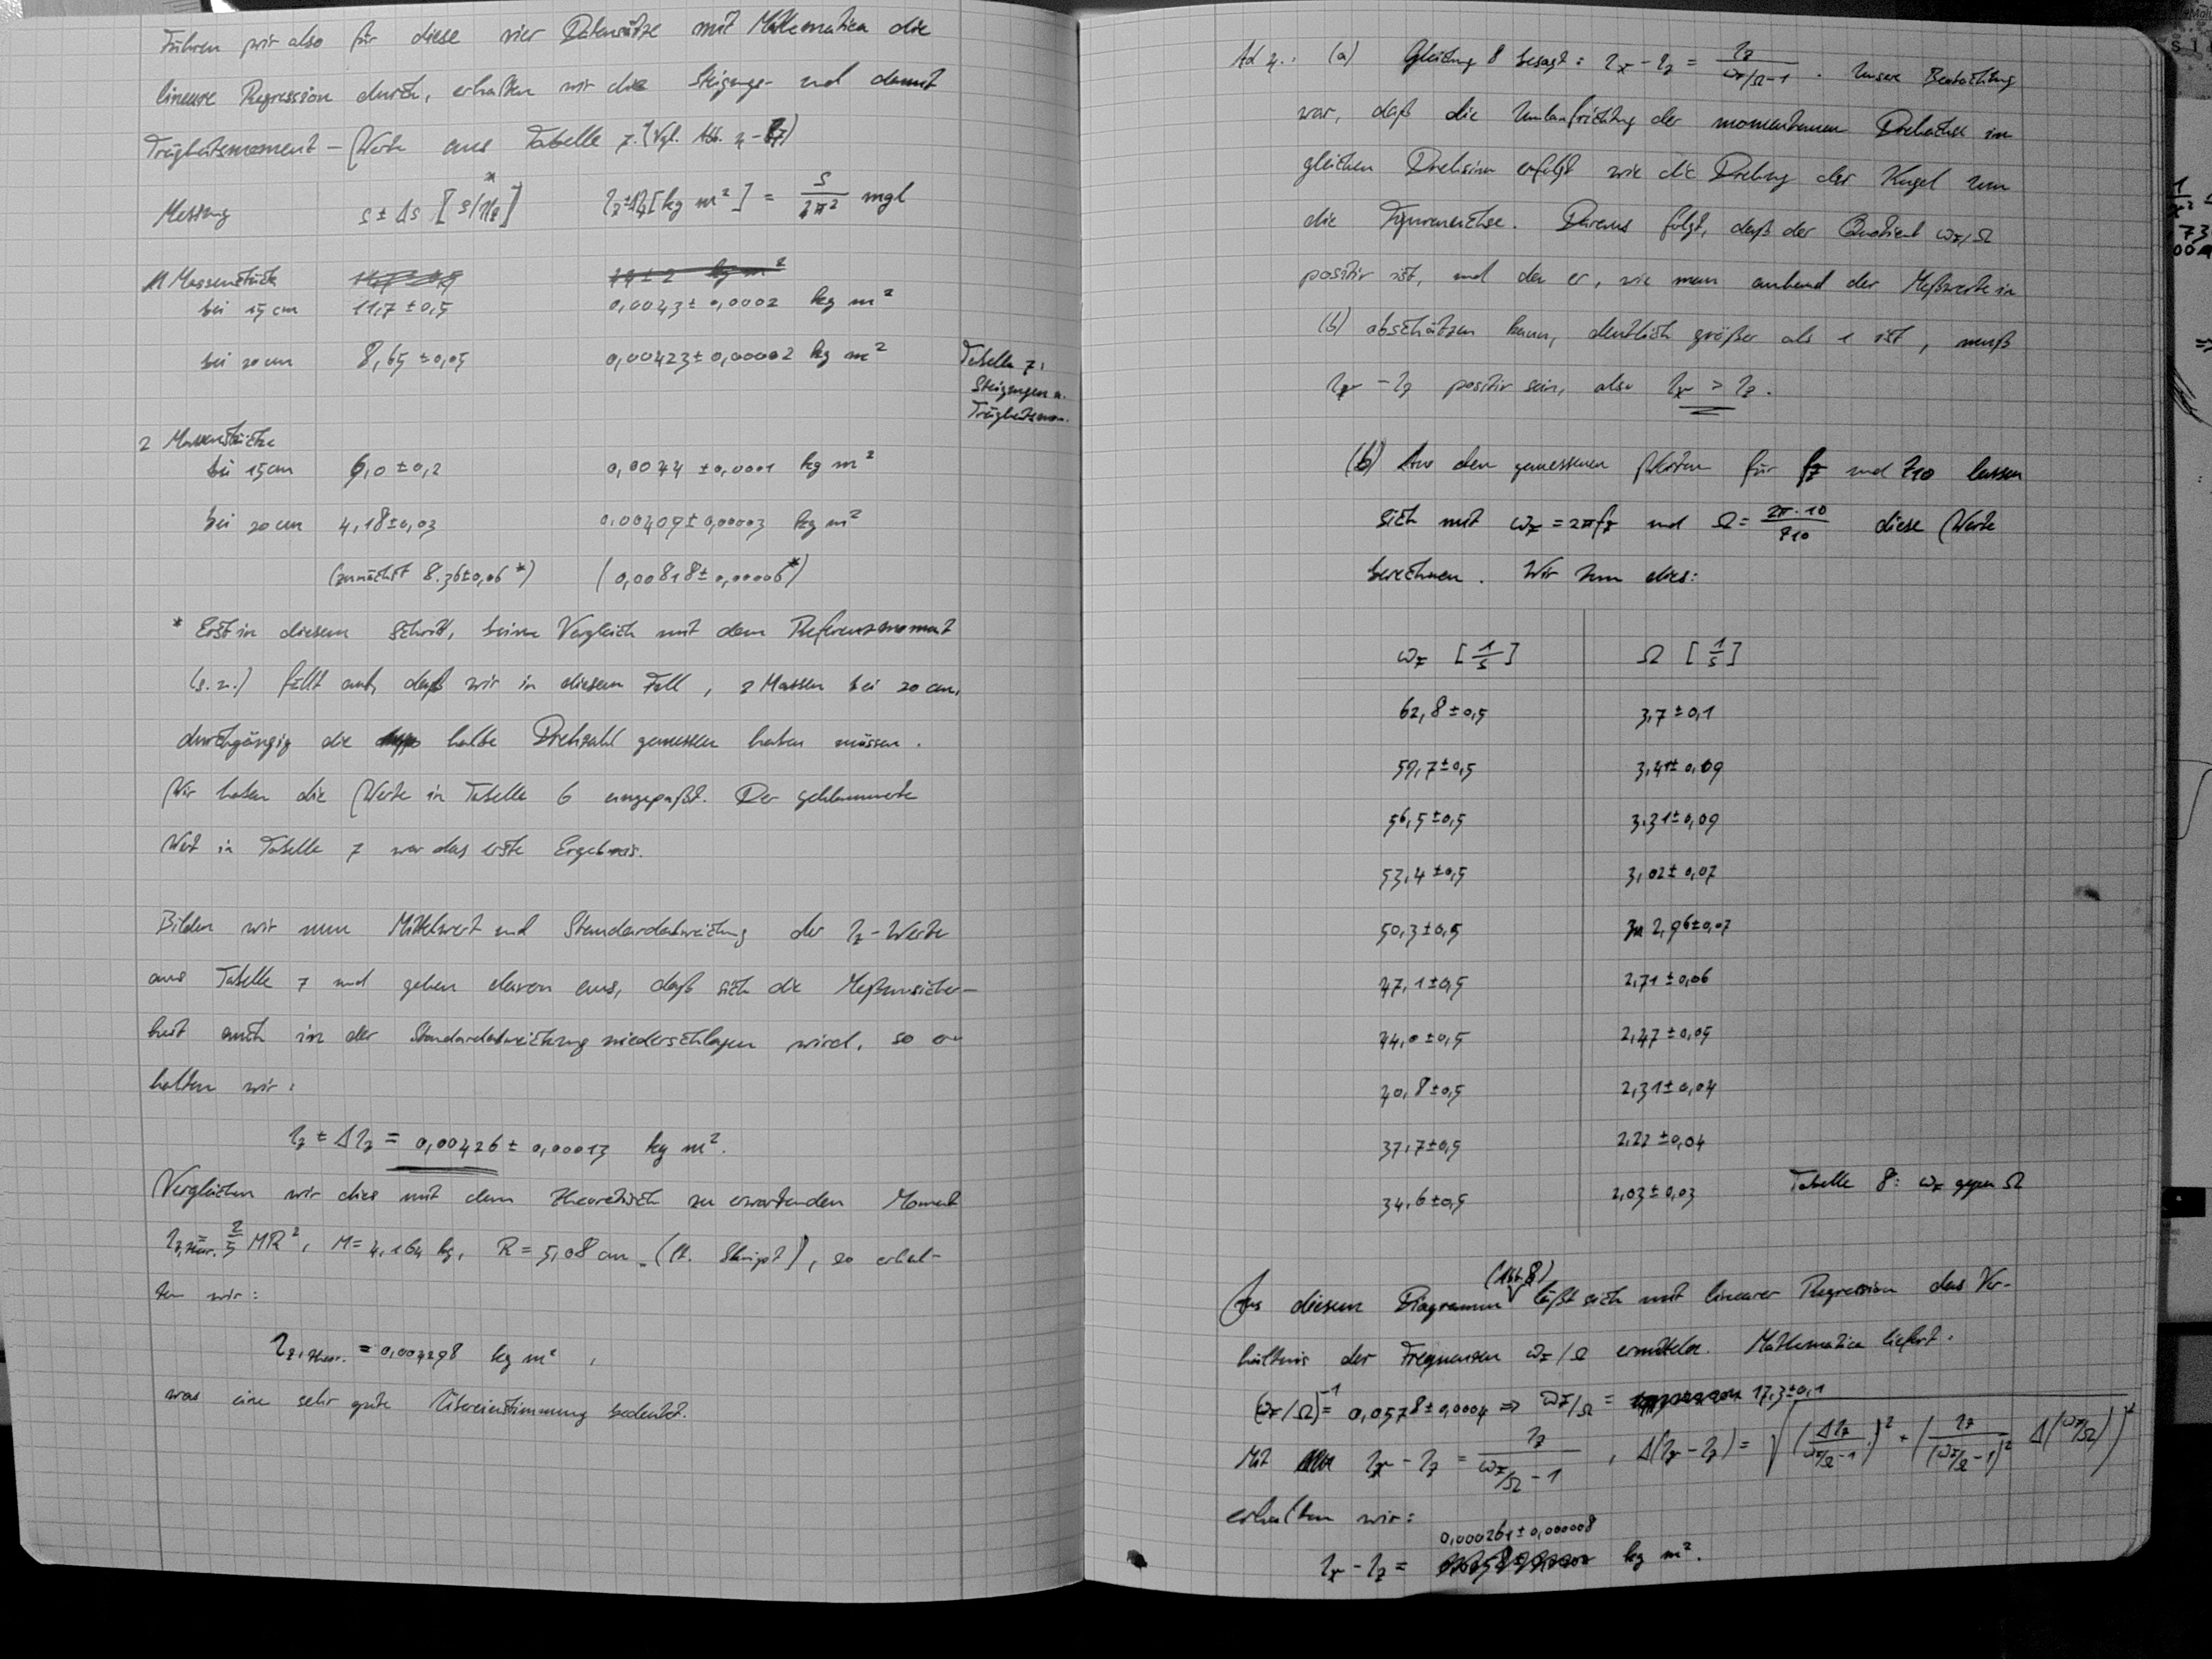 Führen wir also für diese vier Datensätze mit Mathematica die
lineare Regression durch, erhalten wir die Steigungs- und damit
Trägheitsmoment-Werte aus Tabelle 7. (Vgl. Abb. 4-7)
Messung s ± Δs [s/Hz]* I_z±ΔI_z [kg m²] = s/2π² mgl
1 Massenstück
bei 15 cm 11,7 ± 0,5 0,0043 ± 0,0002 kg m²
bei 20 cm 8,65 ± 0,05 0,00423 ± 0,00002 kg m²
Tabelle 7:
Steigungen u.
Trägheitsmom.
2 Massenstücke
bei 15 cm 6,0 ± 0,2 0,0044 ± 0,0001 kg m²
bei 20 cm 4,18 ± 0,03 0,00409 ± 0,00003 kg m²
(zunächst 8.36±0,06*) (0,00818 ± 0,00006*)
* Erst in diesem Schritt, beim Vergleich mit dem Referenzmoment
(s.u.) fällt auf, daß wir in diesem Fall, 2 Massen bei 20 cm,
durchgängig die halbe Drehzahl gemessen haben müssen.
Wir haben die Werte in Tabelle 6 angepaßt. Der geklammerte
Wert in Tabelle 7 war das erste Ergebnis.
Bilden wir nun Mittelwert und Standardabweichung der I_z-Werte
aus Tabelle 7 und gehen davon aus, daß sich die Meßunsicher-
heit auch in der Standardabweichung niederschlagen wird, so er-
halten wir:
I_z ± ΔI_z = 0,00426 ± 0,00013 kg m².
Vergleichen wir dies mit dem theoretisch zu erwartenden Moment
I_z,theor. = 2/5 MR², M = 4,164 kg, R = 5,08 cm (lt. Skript), so erhal-
ten wir:
I_z,theor. = 0,004298 kg m²,
was eine sehr gute Übereinstimmung bedeutet.
Ad 4.: (a) Gleichung 8 besagt: I_x - I_z = I_z/(ω_z/Ω-1). Unsere Beobachtung
war, daß die Umlaufrichtung der momentanen Drehachse im
gleichen Drehsinn erfolgt wie die Drehung der Kugel um
die Figurenachse. Daraus folgt, daß der Quotient ω_z/Ω
positiv ist, und da er, wie man anhand der Meßwerte in
(b) abschätzen kann, deutlich größer als 1 ist, muß
I_x - I_z positiv sein, also I_x > I_z.
(b) Aus den gemessenen Werten für f_z und T10 lassen
sich mit ω_z = 2πf_z und Ω = 2π·10/T10 diese Werte
berechnen. Wir tun dies:
ω_z [1/s] Ω [1/s]
62,8 ± 0,5 3,7 ± 0,1
59,7 ± 0,5 3,41 ± 0,09
56,5 ± 0,5 3,31 ± 0,09
53,4 ± 0,5 3,02 ± 0,07
50,3 ± 0,5 2,96 ± 0,07
47,1 ± 0,5 2,71 ± 0,06
44,0 ± 0,5 2,47 ± 0,05
40,8 ± 0,5 2,31 ± 0,04
37,7 ± 0,5 2,22 ± 0,04
34,6 ± 0,5 2,03 ± 0,03
Tabelle 8: ω_z gegen Ω
Aus diesem Diagramm (Abb. 8) läßt sich mit linearer Regression das Ver-
hältnis der Frequenzen ω_z/Ω ermitteln. Mathematica liefert:
(ω_z/Ω)⁻¹ = 0,0578 ± 0,0004 ⇒ ω_z/Ω = 17,3 ± 0,1
Mit I_x - I_z = I_z/(ω_z/Ω - 1), Δ(I_x - I_z) = √((ΔI_z/(ω_z/Ω-1))² + (I_z/(ω_z/Ω-1)² Δ(ω_z/Ω))²)
erhalten wir:
I_x - I_z = 0,000261 ± 0,000008 kg m².